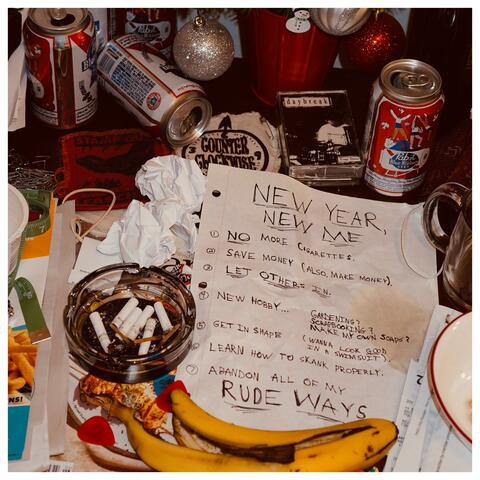 Pabst
daybreak
COUNTER
CLOCKWISE
Pabst
NEW YEAR,
NEW ME
① NO MORE CIGARETTES.
② SAVE MONEY (ALSO, MAKE MONEY).
③ LET OTHERS IN.
④ NEW HOBBY... GARDENING?
SCRAPBOOKING?
MAKE MY OWN SOAPS?
⑤ GET IN SHAPE (WANNA LOOK GOOD
IN A SWIMSUIT).
⑥ LEARN HOW TO SKANK PROPERLY.
⑦ ABANDON ALL OF MY
RUDE WAYS
NS!